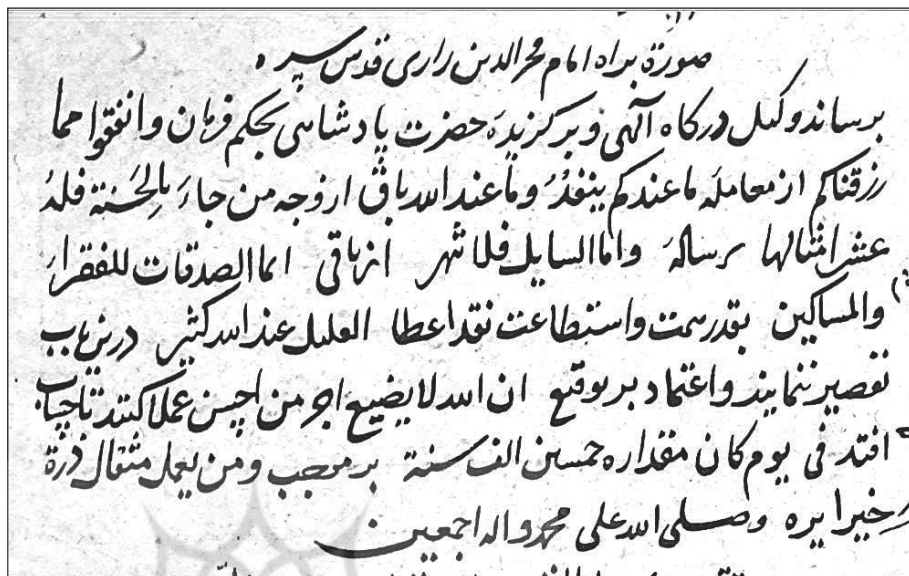 صورة براه امام فخر الدین رازی قدس سره
برساند وکیل درکاه آلهی و برکزیده حضرت پادشاهی بحکم فرمان وانفقوا مما
رزقناکم از معامله ما عندکم ینفدُ وما عند الله باق از وجه من جاءَ بالحسنة فله
عشر امثالها برسالهٔ واما السایل فلا تنهر از باقی انما الصدقات للفقراء
والمساکین بقدر سمت واستطاعت نقد اعطا القلیل عند الله کثیر درین باب
تقصیر ننمایند واعتماد بر توقیع ان الله لا یضیع اجر من احسن عملا کنند تا حساب
افتد فی یوم کان مقداره خمسین الف سنة بر موجب ومن یعمل مثقال ذرة
خیرا یره وصلی الله علی محمد واله اجمعین